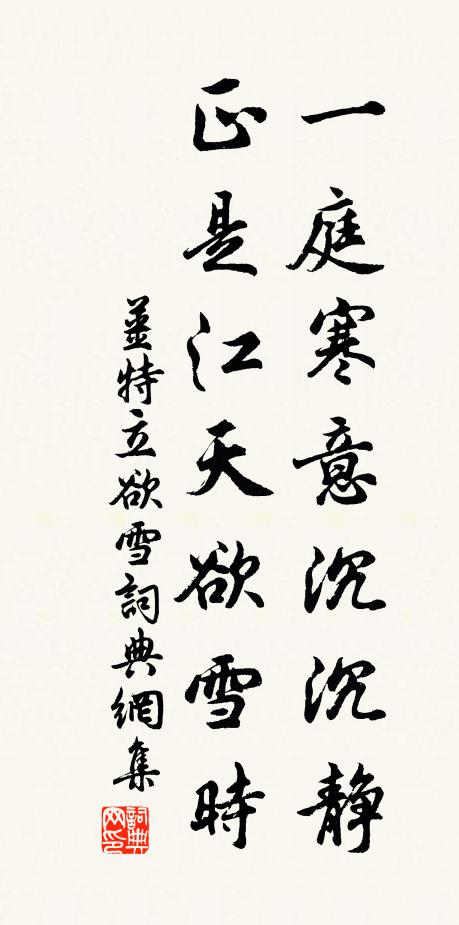 一庭寒意沉沉静
正是江天欲雪時
姜特立欲雪詞典網集
詞典网印